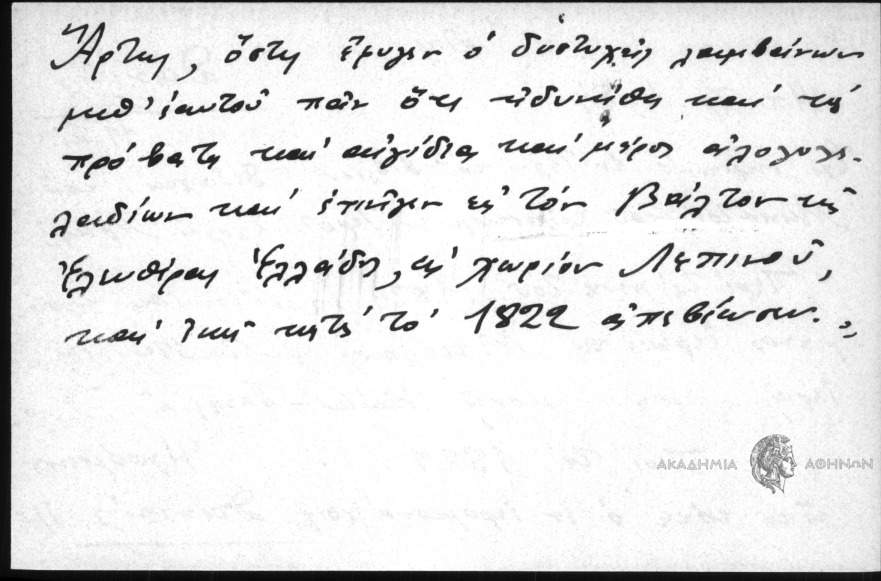 Ἄρτης, ὅστις ἔφυγεν ὁ δυστυχὴς λαμβάνων
μεθ' ἑαυτοῦ πᾶν ὅτι ἠδυνήθη καὶ τὰ
πρόβατα καὶ αἰγίδια καὶ μέρος
καὶ ἐπῆγεν εἰς τὸν Βάλτον τῆς
Ἐλευθέρας Ἑλλάδος, εἰς χωρίον Λεπενοῦ,
καὶ ἐκεῖ κατὰ τὸ 1822 ἀπεβίωσεν.»
ΑΚΑΔΗΜΙΑ ΑΘΗΝΩΝ